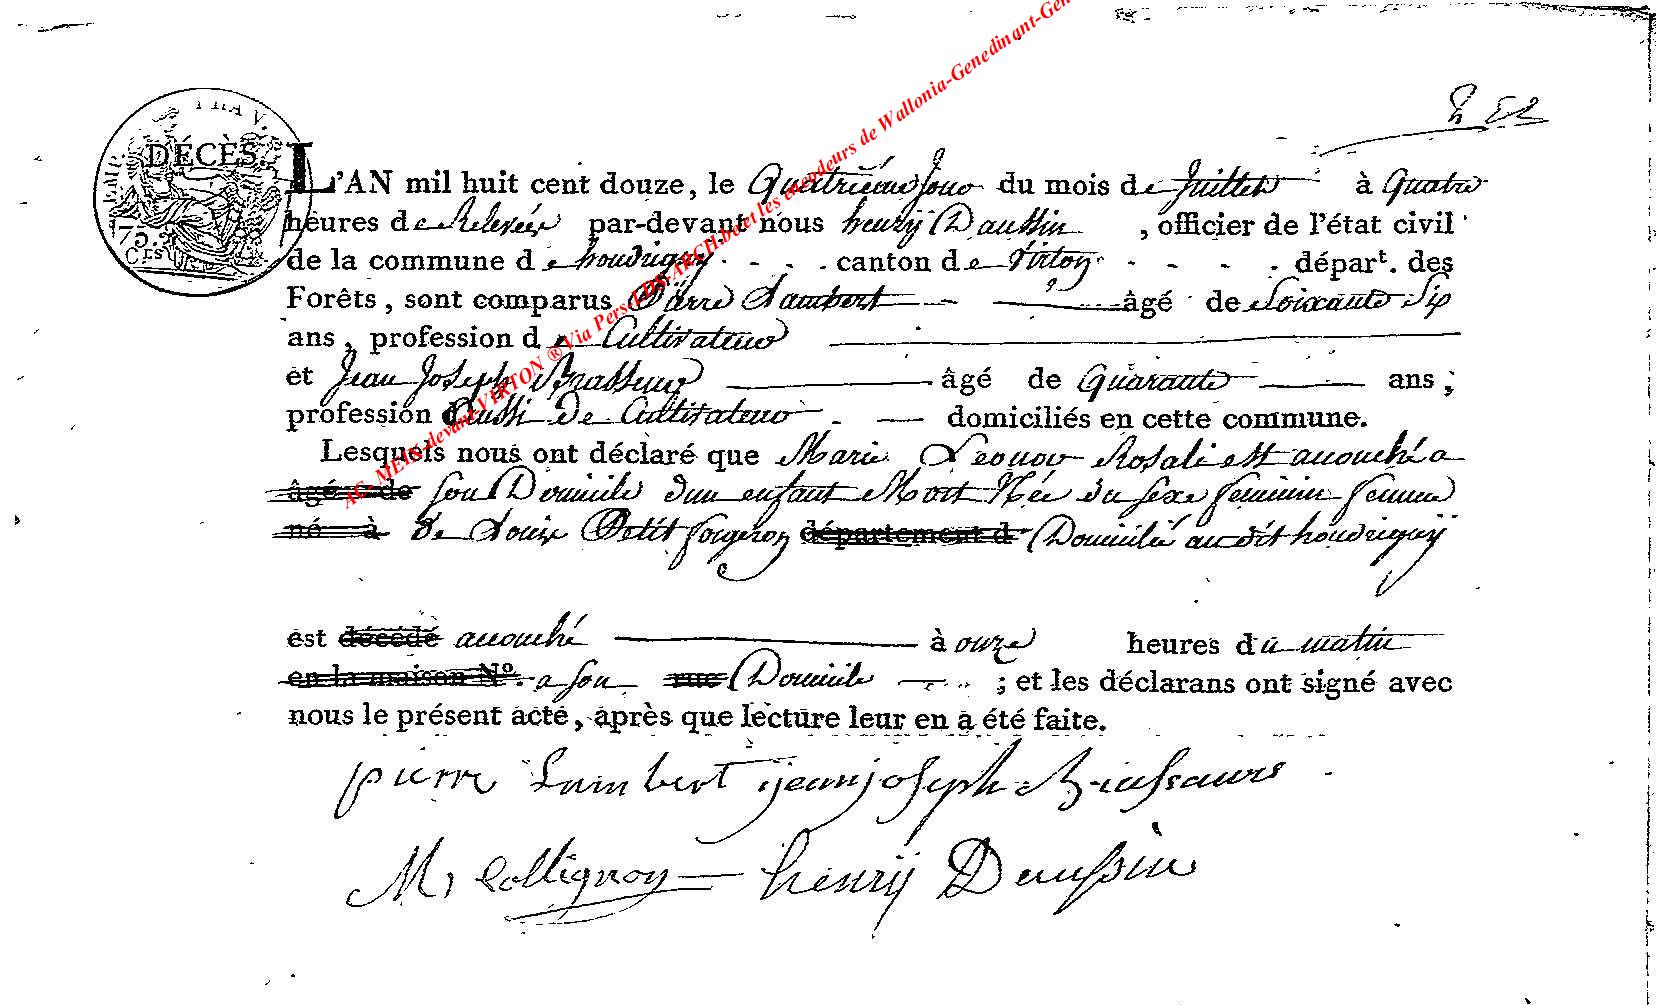 EMP. TRAV.
DÉCÈS.
75.
Cᴱˢ
L'AN mil huit cent douze, le Quatrième Jour du mois de Juillet à Quatre
heures de Relevée par-devant nous henrÿ Daussin, officier de l'état civil
de la commune de houdrigny canton de Virton départ. des
Forêts, sont comparus Pierre Lambert âgé de Soixante Six
ans, profession de Cultivateur
et Jean Joseph Brasseur âgé de Quarante ans;
profession Aussi de Cultivateur domiciliés en cette commune.
Lesquels nous ont déclaré que Marie Leonor Rosali est acouché a
âgé de son Domicile dun enfant Mort Née du sexe feminin femme
né à de Louix Petit forgeron département d Domicilié au dit houdrignÿ
est décédé acouché à onze heures du matin
en la maison Nº. a son rue Domicile ; et les déclarans ont signé avec
nous le présent acte, après que lecture leur en a été faite.
pierre Lambert jean joseph Brasseurs
M, Collignon henrÿ Daussin
AC- MEIX-devant-VIRTON ® Via Pers-LDS-ARCH.be et les encodeurs de Wallonia-Genedinant-Gen